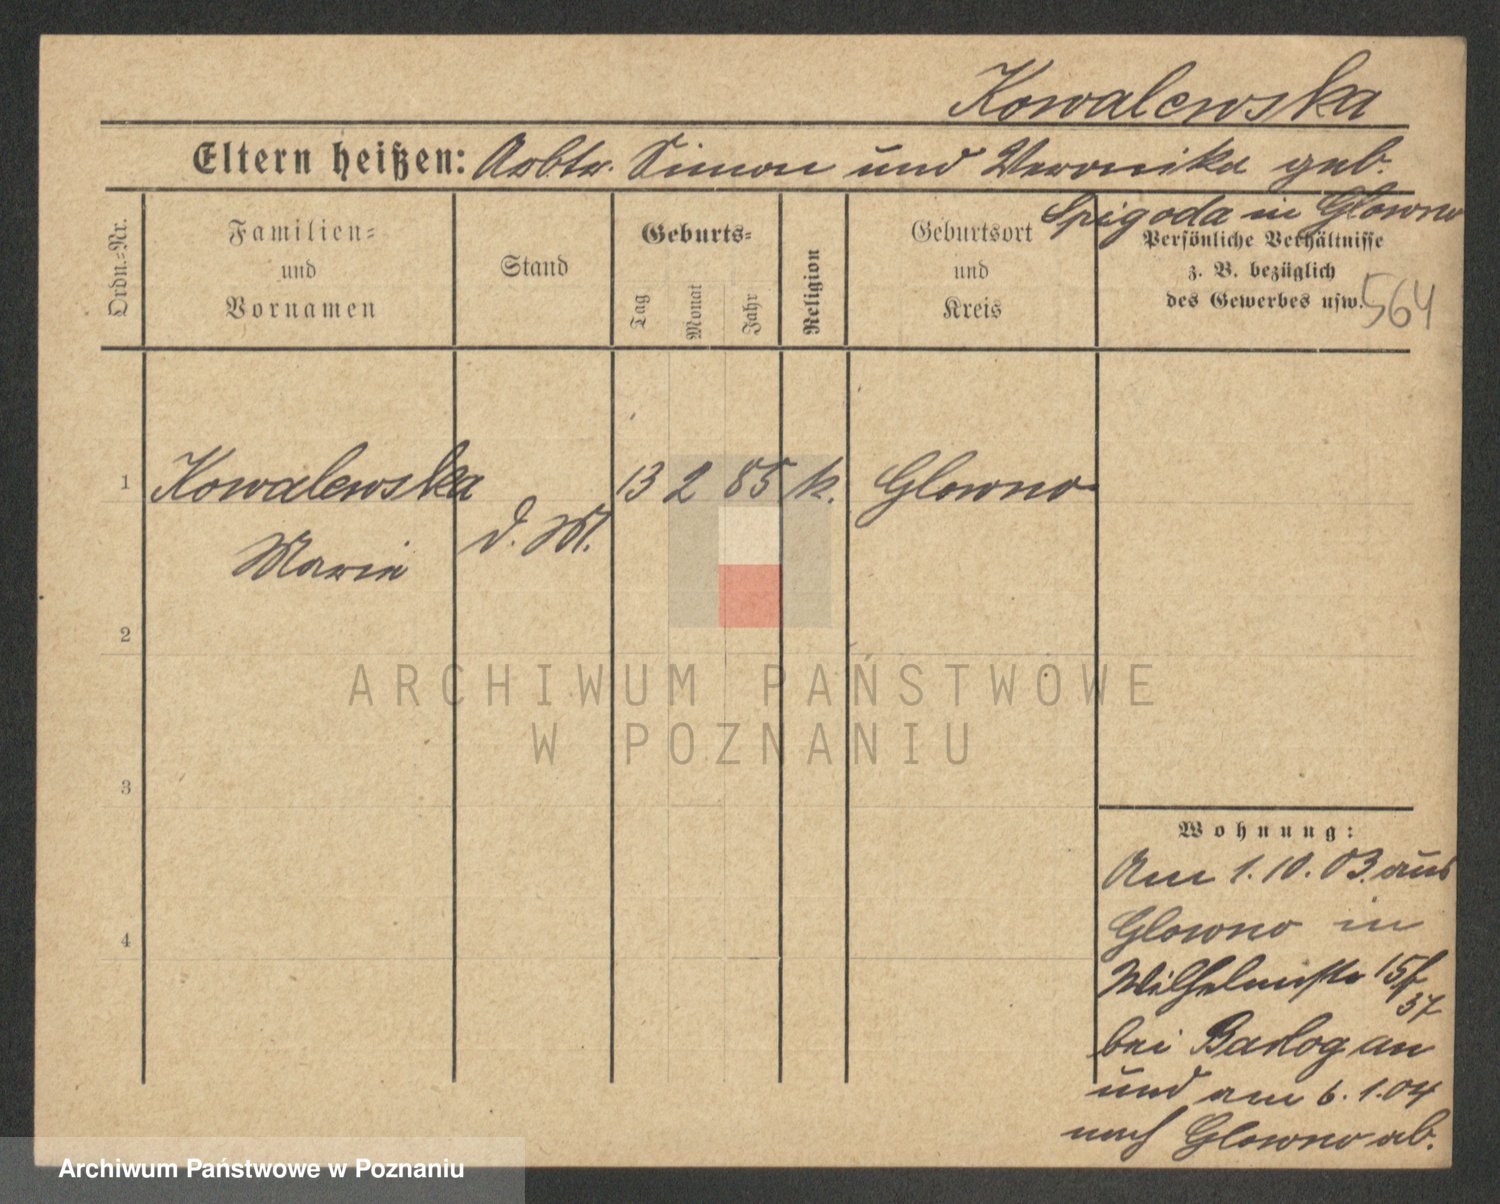 Kowalewska
Eltern heißen: Arbtr. Simon und Veronika geb.
Spigoda in Glowno
Ordn.-Nr.
Familien-
und
Vornamen
Stand
Geburts-
Tag
Monat
Jahr
Religion
Geburtsort
und
Kreis
Persönliche Verhältnisse
z. B. bezüglich
des Gewerbes usw.
564
1 Kowalewska 13 2 85 k. Glowno
Maria d. M.
2
3
4
ARCHIWUM PAŃSTWOWE
W POZNANIU
Wohnung:
Am 1.10.03. aus
Glowno in
Wilhelmstr 15/
37
bei Barlog an
und am 6.1.04
nach Glowno ab.
Archiwum Państwowe w Poznaniu